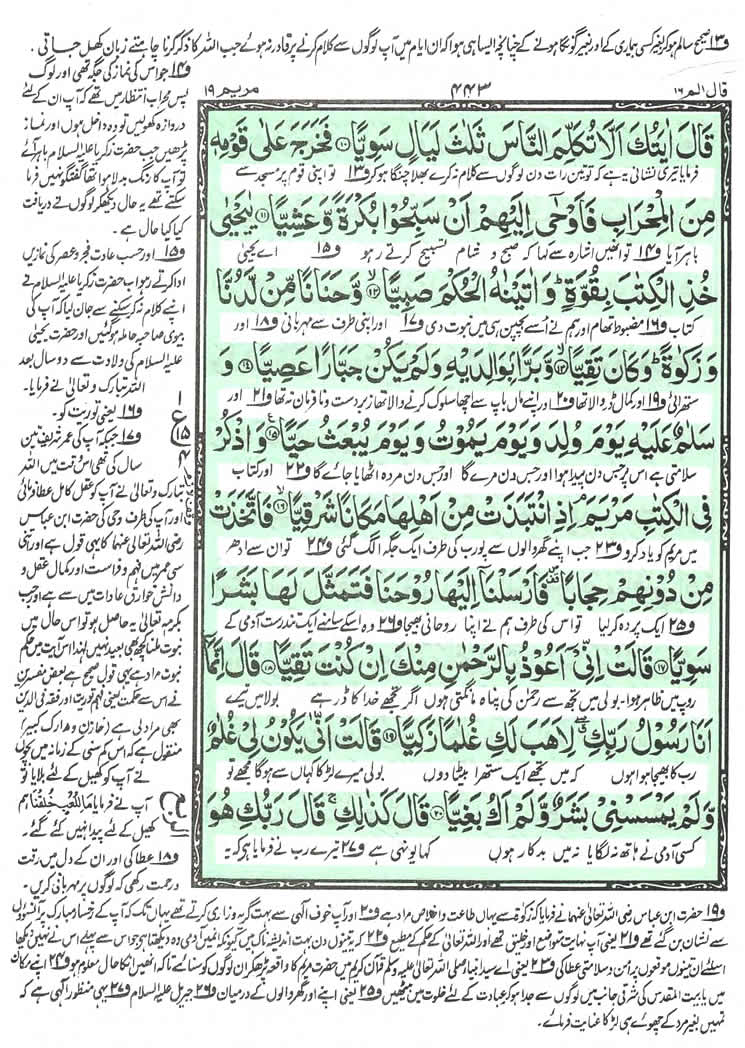 و۱۳ صحیح سالم ہو کر بغیر کسی بیماری کے اور بغیر گونگا ہونے کے چنانچہ ایسا ہی ہوا کہ ان ایام میں آپ لوگوں سے کلام کرنے پر قادر نہ ہوئے جب اللہ کا ذکر کرنا چاہتے زبان کھل جاتی۔
قال الم ۱۶
۴۴۳
مریم ۱۹
قَالَ اٰيَتُكَ اَلَّا تُكَلِّمَ النَّاسَ ثَلٰثَ لَيَالٍ سَوِيًّا ﴿۱۰﴾ فَخَرَجَ عَلٰى قَوْمِهٖ
فرمایا تیری نشانی یہ ہے کہ تو تین رات دن لوگوں سے کلام نہ کرے بھلا چنگا ہو کر و۱۳ تو اپنی قوم پر مسجد سے
مِنَ الْمِحْرَابِ فَاَوْحٰٓى اِلَيْهِمْ اَنْ سَبِّحُوْا بُكْرَةً وَّعَشِيًّا ﴿۱۱﴾ يٰيَحْيٰى
باہر آیا و۱۴ تو انہیں اشارہ سے کہا کہ صبح و شام تسبیح کرتے رہو و۱۵ اے یحییٰ
خُذِ الْكِتٰبَ بِقُوَّةٍ ؕ وَاٰتَيْنٰهُ الْحُكْمَ صَبِيًّا ﴿۱۲﴾ۙ وَّحَنَانًا مِّنْ لَّدُنَّا
کتاب و۱۶ مضبوط تھام اور ہم نے اُسے بچپن ہی میں نبوت دی و۱۷ اور اپنی طرف سے مہربانی و۱۸ اور
وَزَكٰوةً ؕ وَكَانَ تَقِيًّا ﴿۱۳﴾ۙ وَّبَرًّۢا بِوَالِدَيْهِ وَلَمْ يَكُنْ جَبَّارًا عَصِيًّا ﴿۱۴﴾ وَ
ستھرائی و۱۹ اور کمال ڈر والا تھا و۲۰ اور اپنے ماں باپ سے اچھا سلوک کرنے والا تھا زبردست و نافرمان نہ تھا و۲۱ اور
سَلٰمٌ عَلَيْهِ يَوْمَ وُلِدَ وَيَوْمَ يَمُوْتُ وَيَوْمَ يُبْعَثُ حَيًّا ﴿۱۵﴾ وَاذْكُرْ
سلامتی ہے اس پر جس دن پیدا ہوا اور جس دن مرے گا اور جس دن مردہ اٹھایا جائے گا و۲۲ اور کتاب
فِى الْكِتٰبِ مَرْيَمَ ۘ اِذِ انْتَبَذَتْ مِنْ اَهْلِهَا مَكَانًا شَرْقِيًّا ﴿۱۶﴾ۙ فَاتَّخَذَتْ
میں مریم کو یاد کرو و۲۳ جب اپنے گھر والوں سے پورب کی طرف ایک جگہ الگ گئی و۲۴ تو ان سے ادھر
مِنْ دُوْنِهِمْ حِجَابًا ۪ فَاَرْسَلْنَاۤ اِلَيْهَا رُوْحَنَا فَتَمَثَّلَ لَهَا بَشَرًا
و۲۵ ایک پردہ کر لیا تو اس کی طرف ہم نے اپنا روحانی بھیجا و۲۶ وہ اسکے سامنے ایک تندرست آدمی کے
سَوِيًّا ﴿۱۷﴾ قَالَتْ اِنِّىْۤ اَعُوْذُ بِالرَّحْمٰنِ مِنْكَ اِنْ كُنْتَ تَقِيًّا ﴿۱۸﴾ قَالَ اِنَّمَاۤ
روپ میں ظاہر ہوا۔ بولی میں تجھ سے رحمٰن کی پناہ مانگتی ہوں اگر تجھے خدا کا ڈر ہے بولا میں تیرے
اَنَا رَسُوْلُ رَبِّكِ ۖ لِاَهَبَ لَكِ غُلٰمًا زَكِيًّا ﴿۱۹﴾ قَالَتْ اَنّٰى يَكُوْنُ لِىْ غُلٰمٌ
رب کا بھیجا ہوا ہوں کہ میں تجھے ایک ستھرا بیٹا دوں بولی میرے لڑکا کہاں سے ہو گا مجھے تو
وَّلَمْ يَمْسَسْنِىْ بَشَرٌ وَّلَمْ اَكُ بَغِيًّا ﴿۲۰﴾ قَالَ كَذٰلِكِ ۚ قَالَ رَبُّكِ هُوَ
کسی آدمی نے ہاتھ نہ لگایا نہ میں بدکار ہوں کہا یونہی ہے و۲۷ تیرے رب نے فرمایا ہے کہ یہ
و۱۴ جو اس کی نماز کی جگہ تھی اور لوگ
پس محراب انتظار میں تھے کہ آپ ان کے لئے
دروازہ کھولیں تو وہ داخل ہوں اور نماز
پڑھیں جب حضرت زکریا علیہ السلام باہر آئے
تو آپ کا رنگ بدلا ہوا تھا گفتگو نہیں فرما
سکتے تھے یہ حال دیکھ کر لوگوں نے دریافت
کیا کیا حال ہے۔
و۱۵ اور حسب عادت فجر و عصر کی نمازیں
ادا کرتے رہو اب حضرت زکریا علیہ السلام نے
اپنے کلام نہ کر سکنے سے جان لیا کہ آپ کی
بیوی صاحبہ حاملہ ہو گئیں اور حضرت یحییٰ
علیہ السلام کی ولادت سے دو سال بعد
اللہ تبارک و تعالیٰ نے فرمایا۔
و۱۶ یعنی توریت کو۔
و۱۷ جبکہ آپ کی عمر شریف تین
سال کی تھی اس وقت میں اللہ
تبارک و تعالیٰ نے آپ کو عقل کامل عطا فرمائی
اور آپ کی طرف وحی کی حضرت ابن عباس
رضی اللہ تعالیٰ عنہما کا یہی قول ہے اور اتنی
سی عمر میں فہم و فراست اور کمال عقل و
دانش خوارق عادات میں سے ہے اور جب
بکرمہ تعالیٰ یہ حاصل ہو تو اس حال میں
نبوت ملنا کچھ بھی بعید نہیں لہٰذا اس آیت میں حکم
نبوت مراد ہے یہی قول صحیح ہے بعض مفسرین
نے اس سے حکمت یعنی فہم توریت اور فقہ فی الدین
بھی مراد لی ہے (خازن و مدارک کبیر)
منقول ہے کہ اس کم سنی کے زمانہ میں بچوں
نے آپ کو کھیل کے لئے بلایا تو
آپ نے فرمایا مَا لِلَّعِبِ خُلِقْنَا ہم
کھیل کے لئے پیدا نہیں کئے گئے۔
و۱۸ عطا کی اور ان کے دل میں رقت
و رحمت رکھی کہ لوگوں پر مہربانی کریں۔
ا
ع
۱۵
۴
و۱۹ حضرت ابن عباس رضی اللہ تعالیٰ عنہما نے فرمایا کہ زکوٰۃ سے یہاں طاعت و اخلاص مراد ہے و۲۰ اور آپ خوف الٰہی سے بہت گریہ و زاری کرتے تھے یہاں تک کہ آپ کے رخسار مبارک پر آنسوؤں
سے نشان بن گئے تھے و۲۱ یعنی آپ نہایت متواضع اور خلیق تھے اور اللہ تعالیٰ کے حکم کے مطیع و۲۲ کہ یہ تینوں دن بہت اندیشہ ناک ہیں کیونکہ ان میں آدمی وہ دیکھتا ہے جو اس سے پہلے اس نے نہیں دیکھا
اسلئے ان تینوں موقعوں پر امن و سلامتی عطا کی و۲۳ یعنی اے سید انبیاء صلی اللہ تعالیٰ علیہ وسلم قرآن کریم میں حضرت مریم کا واقعہ پڑھ کر ان لوگوں کو سنائیے تاکہ انہیں انکا حال معلوم ہو و۲۴ اپنے مکان
میں یا بیت المقدس کی شرقی جانب میں لوگوں سے جدا ہو کر عبادت کے لئے خلوت میں بیٹھیں و۲۵ یعنی اپنے اور گھر والوں کے درمیان و۲۶ جبریل علیہ السلام و۲۷ یہی منظور الٰہی ہے کہ
تمہیں بغیر مرد کے چھوئے ہی لڑکا عنایت فرمائے۔